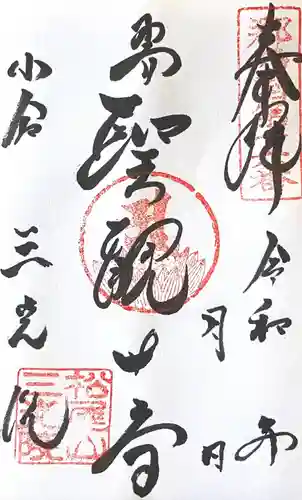 奉拝
令和 年 月 日
聖観世音
小倉 三光院
松尾山